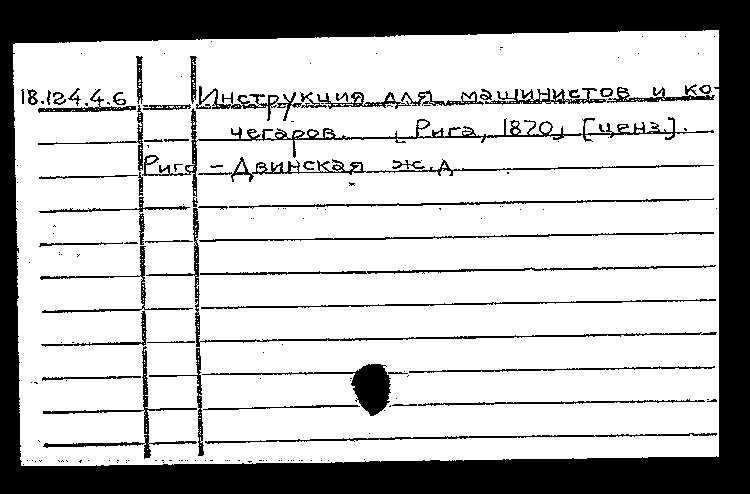 18.124.4.6 Инструкция для машинистов и ко-
чегаров. [Рига, 1870] [ценз.].
Риго-Двинская ж.д